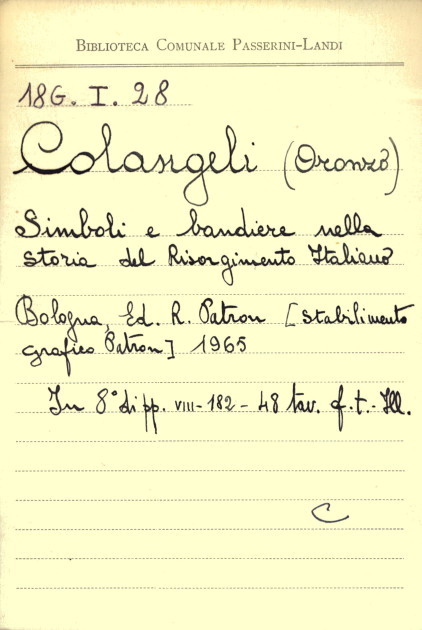 BIBLIOTECA COMUNALE PASSERINI-LANDI
18G. I. 28
Colangeli (Oronzo)
Simboli e bandiere nella
storia del Risorgimento Italiano
Bologna, Ed. R. Patron [Stabilimento
grafico Patron] 1965
In 8° di pp. VIII-182 - 48 tav. f.t. - Ill.
C